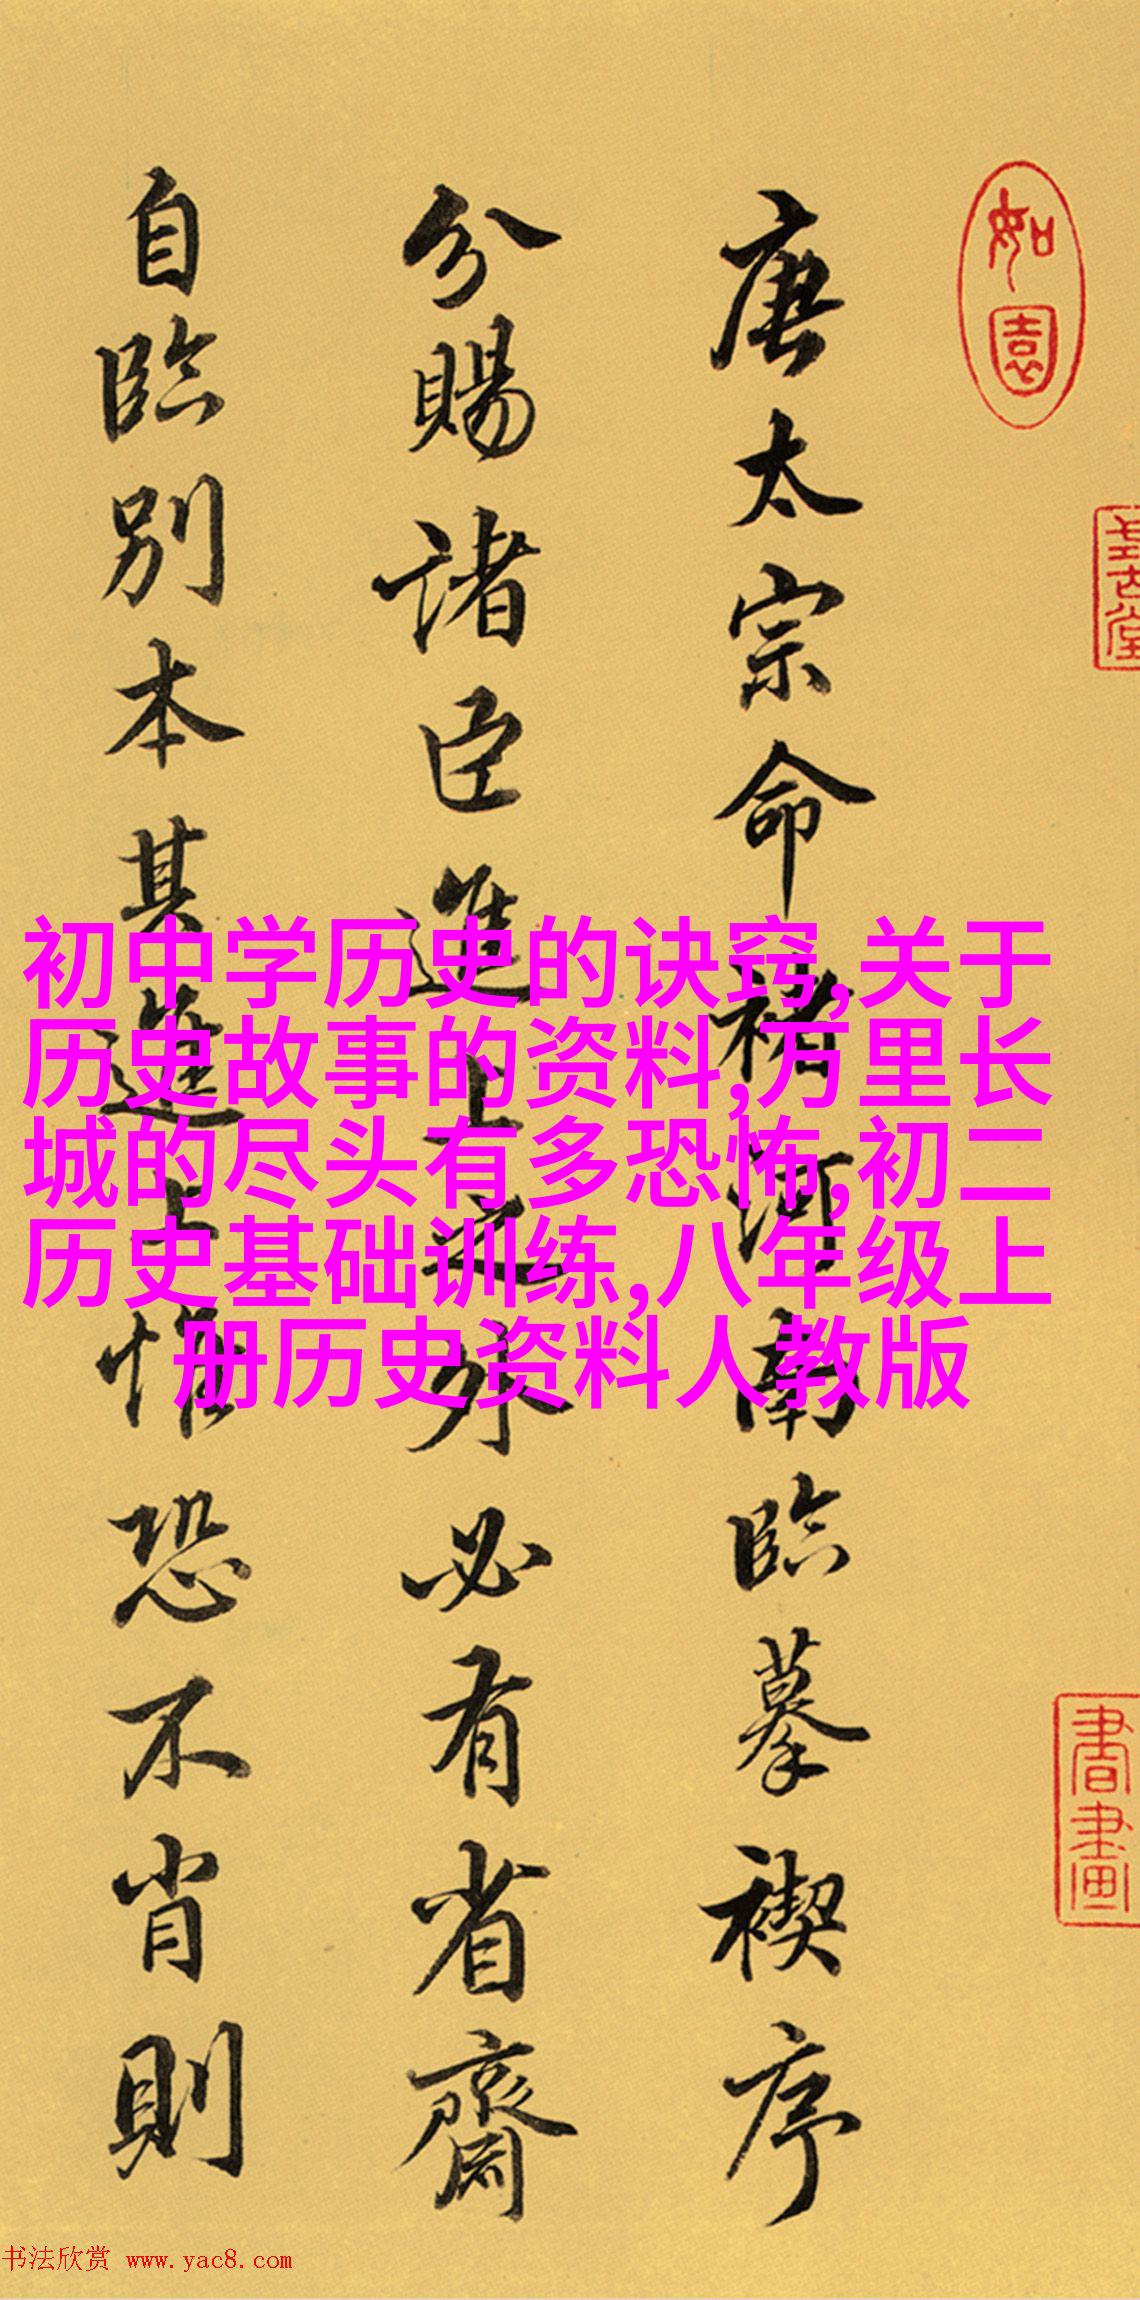 如園
書畫
唐太宗命褚河南臨摹禊序
分賜諸臣進上之外必有省齋
自臨別本其進上惟恐不肖則
初中学历史的诀窍,关于
历史故事的资料,万里长
城的尽头有多恐怖,初二
历史基础训练,八年级上
册历史资料人教版
书法欣赏 www.yac8.com